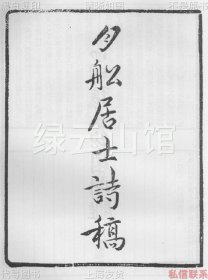 夕船居士詩稿
绿云山馆
私信联系